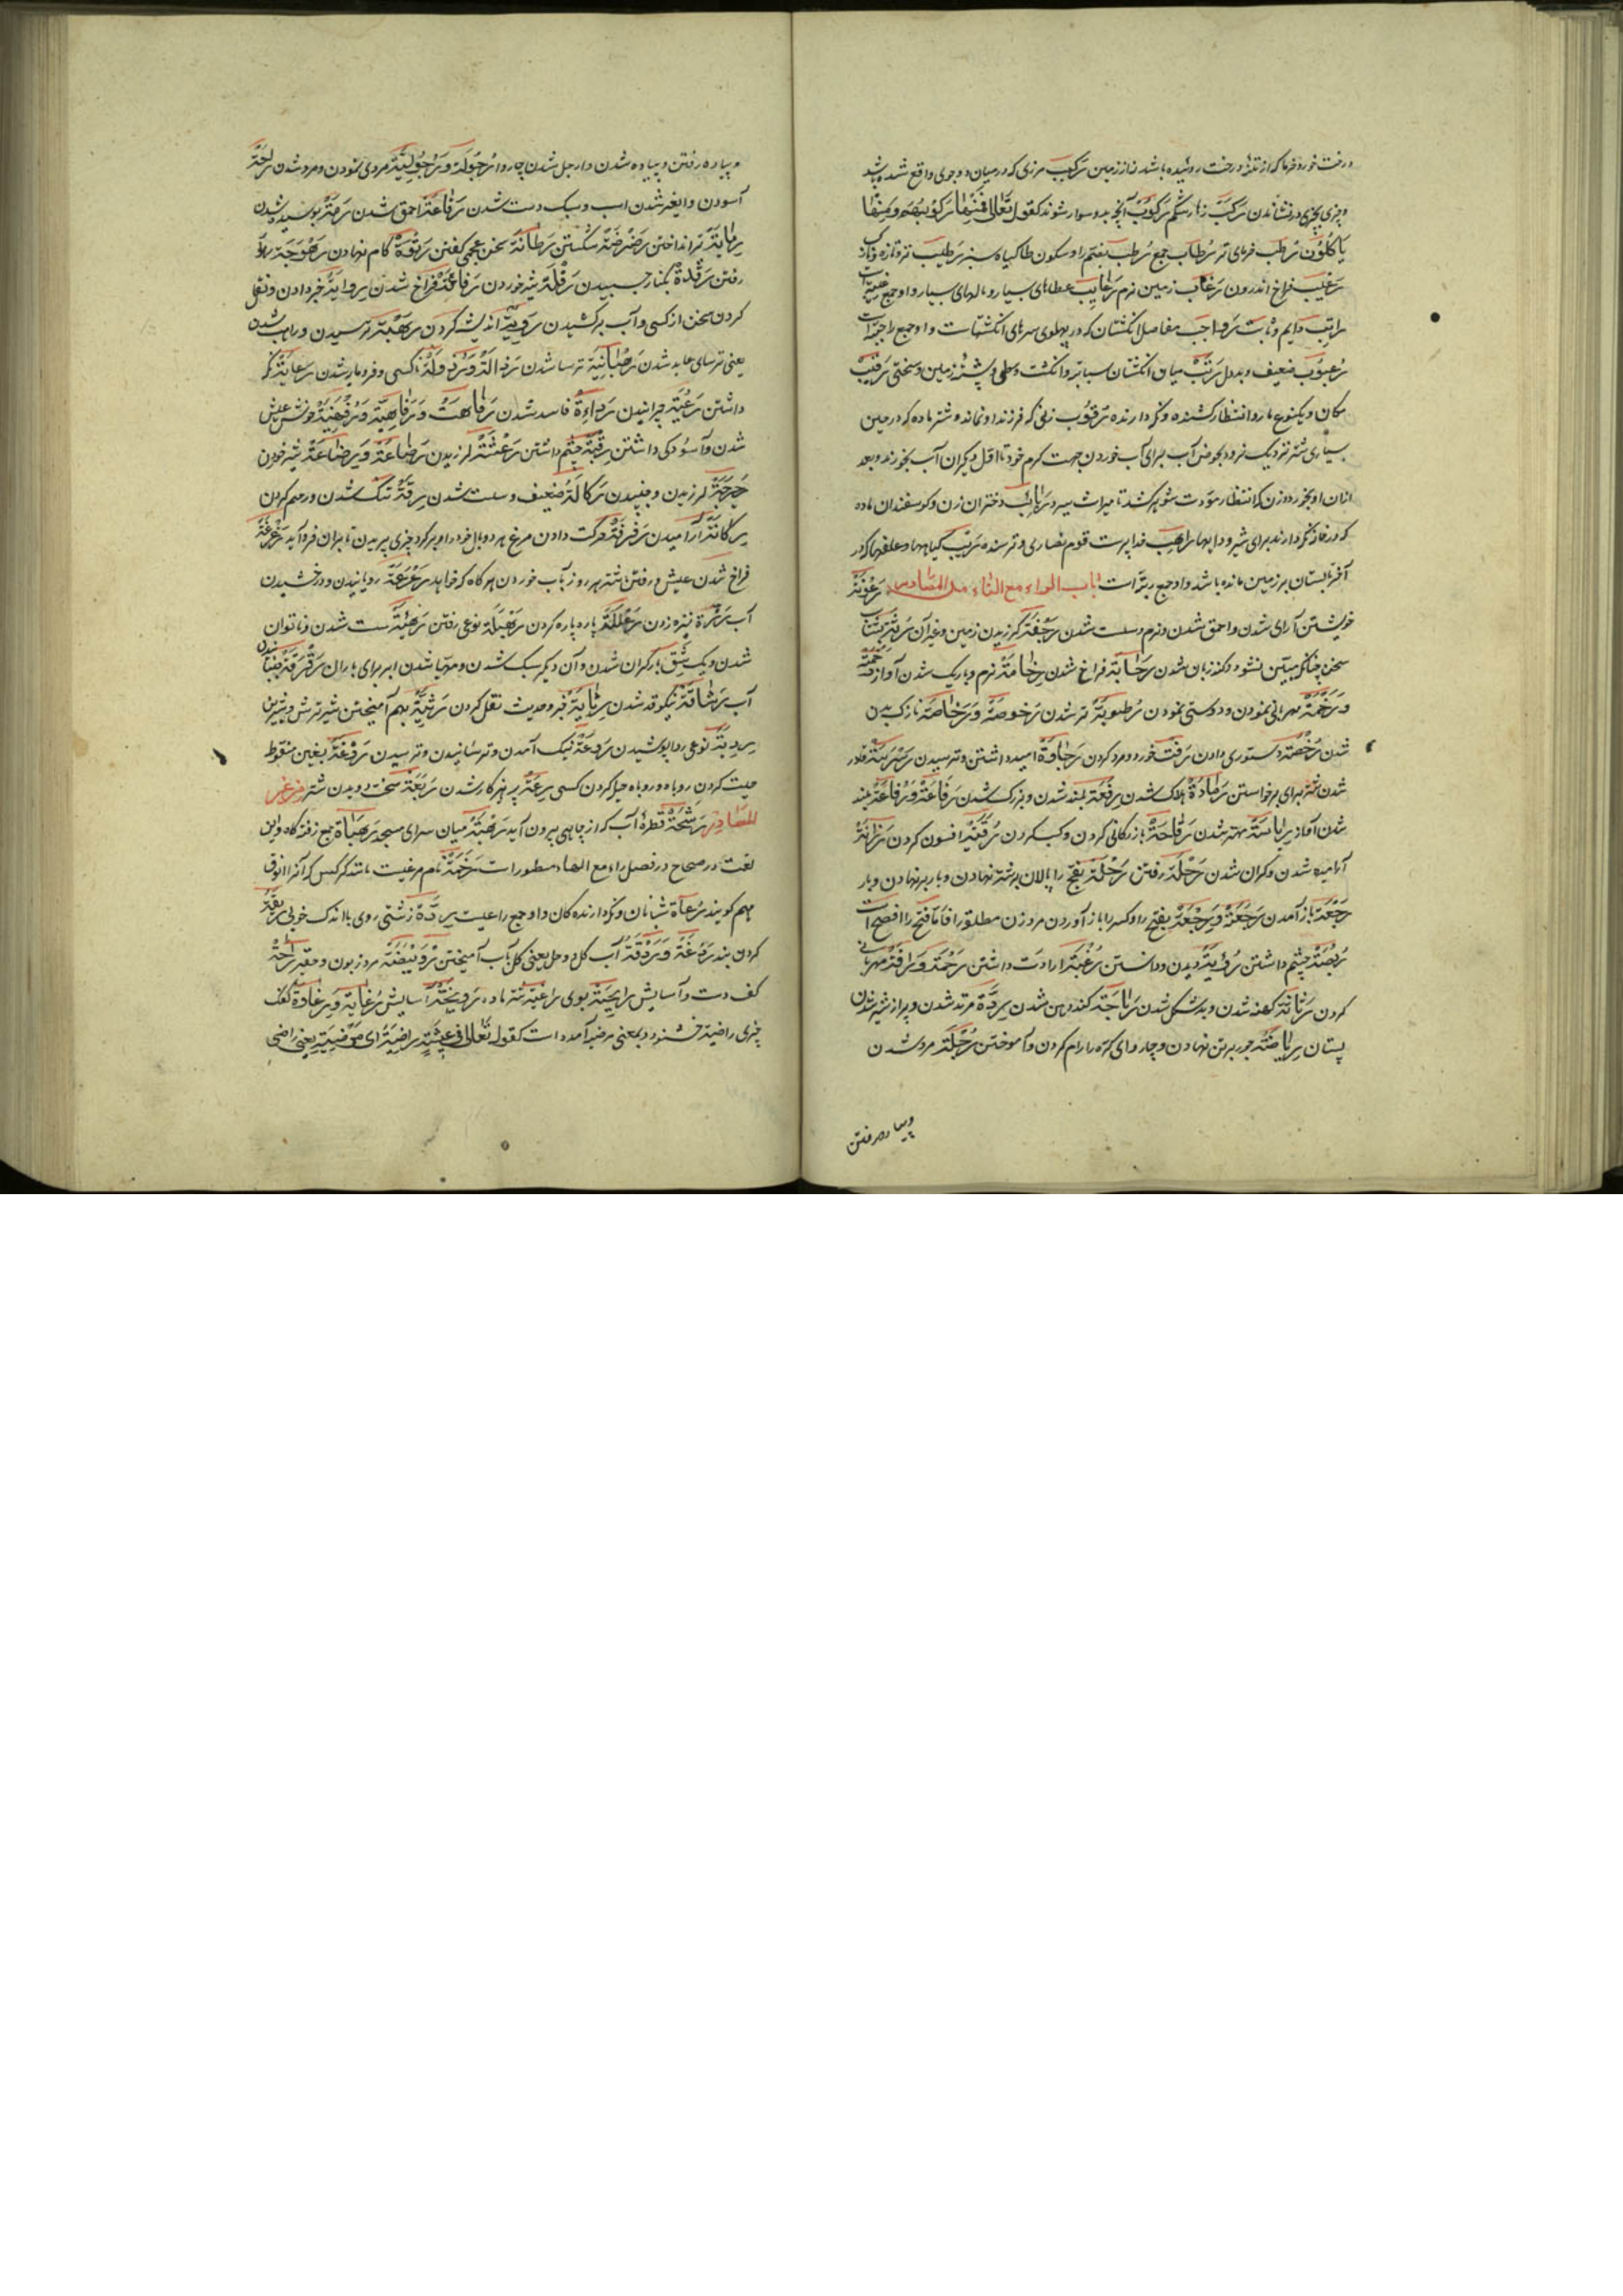 درخت خورد خرما که از تنهٔ درخت روئیده باشد نه از زمین رَکیب مرزی که در میان دو جوی واقع شده باشد
و چیزی بچیزی در نشاندن رَکَبَ زهار شکم رَکُوب آنچه بدو سوار شوند کقوله تعالی فَمِنْهَا رَکُوبُهُم وَمِنْهَا
یَأکُلُونَ رُطَب خرمای تر رُطاب جمع رُطب بضم را و سکون طا گیاه سبز رَطیب تر و تازه و نازک
رَغیب فراخ اندرون رَغاب زمین نرم رَغایب عطاهای بسیار و مالهای بسیار و او جمع رغیبة است
راتِب دایم و ثابت رَواجِب مفاصل انگشتان که در پهلوی سرهای انگشتانست و او جمع راجبة است
رُعبُوب ضعیف و بددل رَتَب میان انگشتان سبابه و انگشت وسطی و پشتهٔ زمین و سختی رَقیب
مکان و یکنوع مار و انتظار کشنده و نگه دارنده رَقُوب زنی که فرزند او نماند و شتر ماده که در حین
بسیاری شتر نزدیک نرود بحوض آب برای آب خوردن جهت کرم خود تا اول دیگران آب بخورند و بعد
ازان او بخورد و زن که انتظار موت شوهر کشد تا میراث ببرد رَبائِب دختران زن و گوسفندان ماده
که در خانه نگه دارند برای شیر و دابها راهِب خداپرست قوم نصاری و ترسنده رَبَب گیاهها و علفها که در
آخر تابستان بر زمین مانده باشد و او جمع ربّة است باب الراء مع التاء من المصادر رُعُونَة
خویشتن آرای شدن و احمق شدن و نرم و سست شدن رَجْفَة لرزیدن زمین و غیر آن رُتَّة بشتاب
سخن چنانکه مبیّن نشود و کند زبان شدن رَحابَة فراخ شدن رَخامَة نرم و باریک شدن آواز رَحْمَة
وَ مَرحَمَة مهربانی نمودن و دوستی نمودن رُطُوبَة تر شدن رُخُوصَة وَ رَخاصَة نازک بدن
شدن رُخصَة دستوری دادن رَفت خورد و مرد کردن رَجاوَة امید داشتن و ترسیدن
شدن شتر برای برخواستن رَمادَة هلاک شدن رِفعَة بلند شدن و بزرگ شدن رَفاعَة وَ رُفاعَة بلند
شدن آواز رِیاسَة مهتر شدن رَقاحَة بازرگانی کردن و کسب کردن رُقیَة افسون کردن رَزانَة
آرامیده شدن و گران شدن رِحْلَة رفتن رَحْلَة بفتح را پالان بر شتر نهادن و بار بر نهادن و بار
رَجْعَة باز آمدن رَجْعَة وَ رِجْعَة بفتح را و کسر را باز آوردن مرد زن مطلقه را فاما فتح را افصح است
رُبْصَة چشم داشتن رُؤیَة دیدن و دانستن رَغْبَة ارادت داشتن رَحْمَة وَ رَافَة مهربانی
کردن رَثاثَة کهنه شدن و بدشکل شدن کند ذهن شدن رِدَّة مرتد شدن و پر از شیر شدن
پستان رِیاضَة جور بر تن نهادن و چاروای کره را رام کردن و آموختن رُجْلَة مرد شدن
وپیاده رفتن
و پیاده رفتن و پیاده شدن و ارجل شدن چاروا رُجُولَة وَ رُجُولِیَّة مردی نمودن و مرد شدن راحَة
آسودن و اغر شدن اسب و سبک دست شدن رَقاعَة احمق شدن رِمَّة پوسیده شدن
رِمایَة تیر انداختن رَضْرَضَة شکستن رَطانَة سخن عجمی گفتن رَتوَة گام نهادن
رفتن بچسبیدن شیر خوردن رَفاغَة فراخ شدن رِوایَة خبر دادن و نقل
کردن سخن از کسی و آب برکشیدن رَوِیَّة اندیشه کردن رَهْبَة ترسیدن و راهب شدن
یعنی ترسای عابد شدن رَهْبانِیَّة ترسا شدن رَذالَة وَ رُذُولَة ناکسی و فرومایه شدن رِعایَة نگه
داشتن رَعْیَة چرانیدن رَداءَة فاسد شدن رَفاهَت وَ رَفاهِیَة وَ رُفَهْنِیَة خوش عیش
شدن و آسودگی داشتن رِقْبَة چشم داشتن رَعْشَة لرزیدن رَضاعَة وَ رِضاعَة شیر خوردن
لرزیدن و جنبیدن رَکاکَة ضعیف و سست شدن رِقَّة تنک شدن و رحم کردن
رَکانَة آرامیدن رَفرَفَة حرکت دادن مرغ هر دو بال خود را و بر گرد چیزی پریدن تا بران فرود آید رَغْرَغَة
فراخ شدن عیش و رفتن شتر هر روز بآب خوردن هر گاه که خواهد رَعْرَعَة رویانیدن و درخشیدن
آب نیزه زدن رَعْبَلَة پاره پاره کردن رَهْبَلَة نوعی رفتن رَهْیَأَة سست شدن و ناتوان
شدن و یک شق بار گران شدن و آن دیگر سبک شدن و مهیا شدن ابر برای باران رَقْرَقَة جنبان شدن
آب رَشاقَة نیکو قد شدن رِثایَة خبر و حدیث نقل کردن رَثِیَّة بهم آمیختن شیر ترش و شیرین
نوعی ردا پوشیدن رَدْعَة نیک آمدن و ترسانیدن و ترسیدن رَوْغَة بغین منقوط
حیت کردن روباه و روباه حیلة کردن کسی رِعَة پرهیزکار شدن رَبَعَة سخت دویدن شتر من غیر
المصادر رَشْحَة قطرهٔ آب که از چاهی بیرون آید رَحْبَة میان سرای مسجد
لغت در صحاح در فصل راء مع الهاء مسطور است رَخَمَة نام مرغیست مانند کرکس که آنرا انوق
بهم گویند رُعاة شبانان و نگه دارنده گان و او جمع راعیست رِدَّة زشتی روی با اندک خوبی رِبْقَة
گردن بند رَدْغَة وَ رَدْقَة آب گل و وحل یعنی گل بآب آمیختن رُوَیْبِضَة مرد زبون و حقیر راحَة
کف دست و آسایش رایحَة بوی راعیَة شتر ماده رَویحَة آسایش رُغایَة وَ رُغاوَة کفک
چیزی راضیَة خشنود و بمعنی مرضیه آمده است کقوله تعالی فِی عِیشَةٍ رَاضِیَةٍ ای مَرضِیَّةٍ یعنی راضی